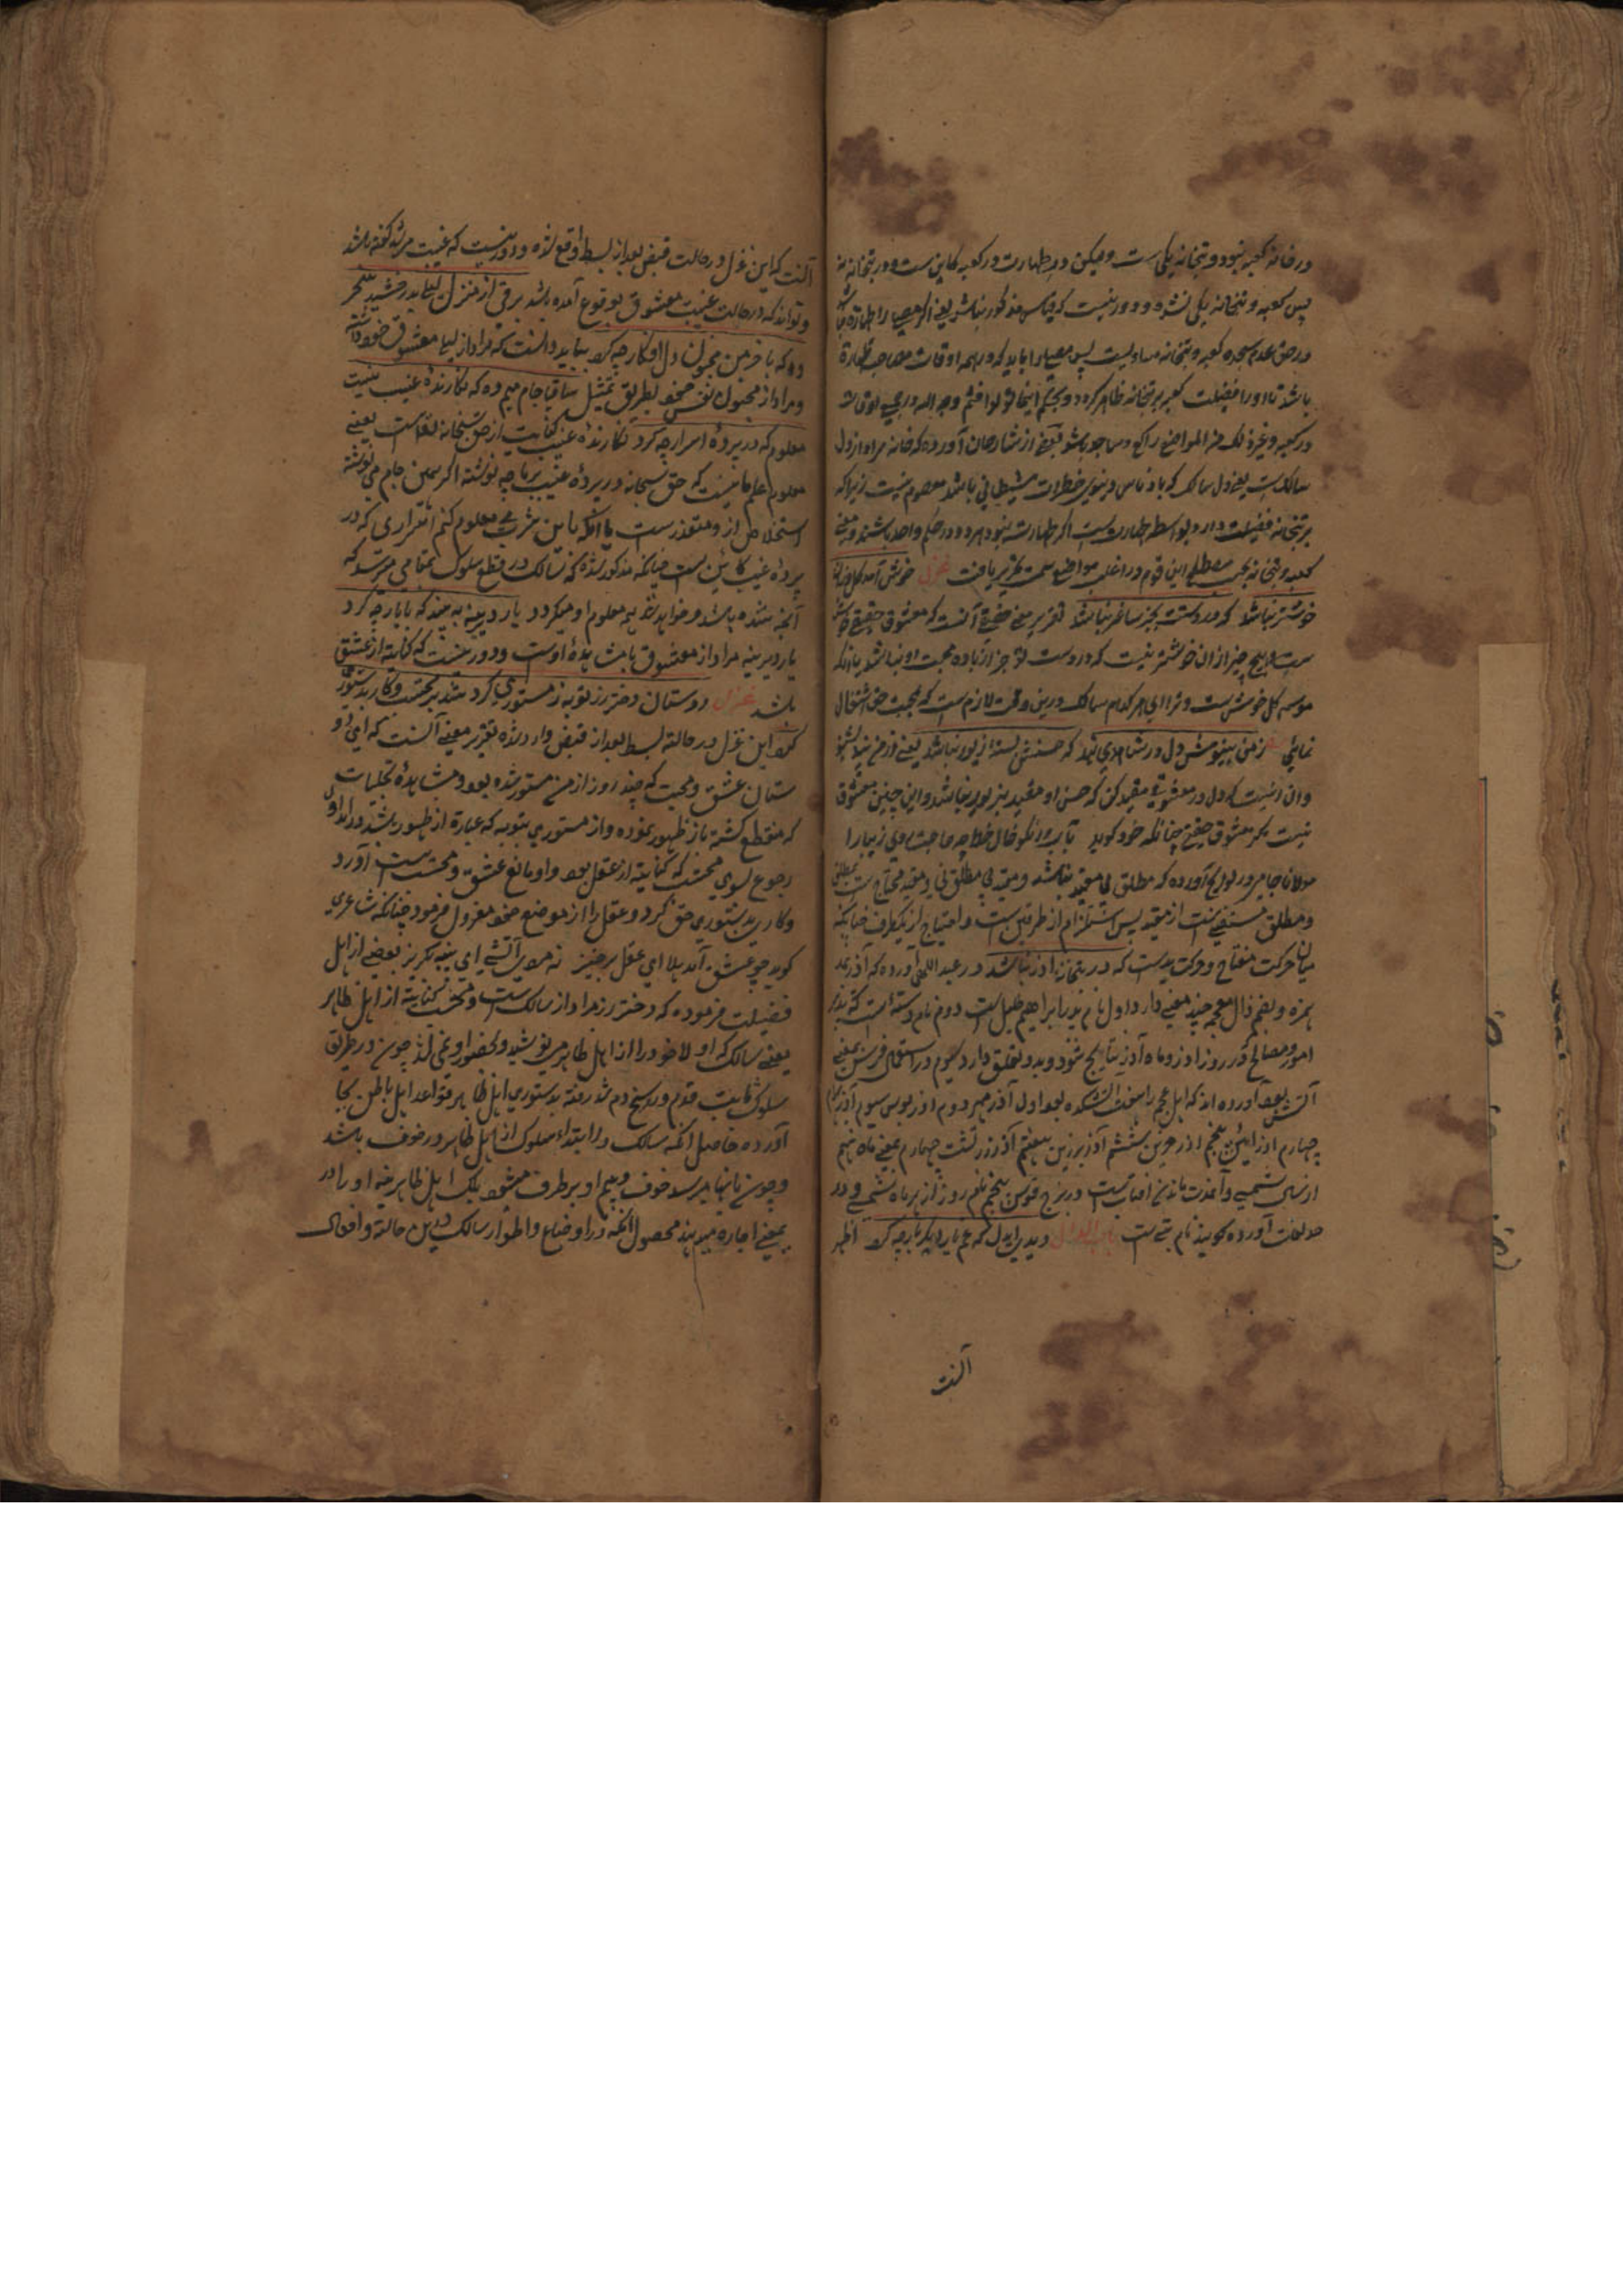 در خانه کعبه نبود و بتخانه یکی ست ولیکن در طهارت در کعبه کاین ست و در بتخانه نه
پس کعبه و بتخانه یکی نشده و دور نیست که قیاس مذکور نباشد یعنی اگر مصلی را طهارة نباشد
در حق عدم سجده کعبه و بتخانه مساویست پس مصلی را باید که در همه اوقات مصاحب طهارة
باشد تا او را فضیلت کعبه بر بتخانه ظاهر گردد و بحکم اینما تولوا فثم وجه الله در جمیع اوقات
در کعبه و غیر ذلک من المواضع راکع و ساجد باشد بعضی از شارحان آورده که خانه مراد از دل
سالک ست یعنی دل سالک که باد ناس و بنور خطرات شیطانی باشد معصوم نیست زیرا که
بر بتخانه فضیلت دارد بواسطه طهارت ست اگر طهارت نبود هر دو در حکم واحد باشند و معنی
کعبه و بتخانه بحسب مصطلح این قوم در اغلب مواضع سمت تحریر یافت غزل خوش آمد گل وزان
خوشتر نباشد که در دستت بجز ساغر نباشد تقریر معنی حقیقة آنست که معشوق حقیقی
ست هیچ چیز از ان خوشتر نیست که در دست تو جز از باده محبت او نباشد یا آنکه
موسم گل خوش ست و ترا ای هر کدام سالک درین وقت لازم ست که بمحبت حق اشتغال
نمائی ز من بنیوش و دل در شاهدی بند که حسنش بسته از زیور نباشد یعنی از من بنیوش
و ان اینست که دل در معشوقی مقید کن که حسن او مقید بزیور نباشد و این چنین معشوق
نیست مگر معشوق حقیقی چنانکه خود گوید بآب و رنگ و خال و خط چه حاجت روی زیبا را
مولانا جامی در لوایح آورده که مطلق بی مقید نباشد و مقید بی مطلق نی و مقید محتاج ست بمطلق
و مطلق مستغنی ست از مقید پس استلزام از طرفین ست و احتیاج از یکطرف چنانکه
میان حرکت مفتاح و حرکت ید ست که در بتخانه آذر نباشد در عبد اللهی آورده که آذر بمد
همزه و بضم ذال معجمه چند معنی دارد اول نام پدر ابراهیم خلیل ست دوم نام فرشته است که تدبیر
امور و مصالح که در روز آذر و ماه آذر نتایج شود و بدو تعلق دارد سیوم در استعمال فرس بمعنی
آتش بود آورده اند که اهل عجم را هفت آتشکده بود اول آذر مهر دوم آذر نوش سیوم آذر بهرام
چهارم آذر آیین پنجم آذر خرین ششم آذر برزین هفتم آذر زرتشت چهارم بمعنی ماه نهم
از سال شمسی و آن مدت ماندن افتاب ست در برج قوس پنجم نام روز از هر ماه شمسی و در
مد لغات آورده گویند نام بتی ست باب الدال دیدی ای دل که غم یار دگر بار چه کرد اظهر
آنست
آنست که این غزل در حالت قبض بعد از بسط واقع شده و دور نیست که غیبت مرشد گفته باشد
و تواند که در حالت غیبت معشوق بوقوع آمده باشد برقی از منزل لیلی بدرخشید سحر
وه که با خرمن مجنون دل افکار چه کرد بباید دانست که مراد از لیلی معشوق خود داشته
و مراد از مجنون نفس خود بطریق تمثیل ساقیا جام میم ده که نگارنده غیب نیست
معلوم که در پرده اسرار چه کرد نگارنده غیب کنایت از حق سبحانه تعالی ست یعنی
معلوم علم ما نیست که حق سبحانه در پرده غیب بر ما چه نوشته اگر بمن جام می نوشته
استخلاص از و متعذر ست یا آنکه باین شرب می معلوم کنم اسراری که در
پرده غیب کاین ست چنانکه مذکور شده که سالک در قطع سلوک بمقامی میرسد که
آنچه شده باشد و خواهد شد همه معلوم او میگردد یار دیرینه ببینید که با یار چه کرد
یار دیرینه مراد از معشوق یا مشاهده اوست و دور نیست که کنایة از عشق
باشد غزل دوستان دختر رز توبه ز مستوری کرد شد بر محتسب و کار بدستوری
کرد این غزل در حالة بسط بعد از قبض وارد شده تقریر معنی آنست که ای دو
ستان عشق و محبت که چند روز از من مستور شده بود و مشاهده تجلیات
که منقطع گشته باز ظهور نموده و از مستوری بتوبه که عبارة از ظهور باشد درآمد و او
رجوع بسوی محتسب که کنایة از عقل بود و او مانع عشق و محبت ست آورد
و کار بدستوری حق کرد و عقل را از موضع خود معزول فرمود چنانکه شاعری
گوید چو عشق آمد هلا ای عقل برخیز نه مرد آتشی ای پنبه بگریز بعضی از اهل
فضیلت فرموده که دختر رز مراد از سالک ست و محتسب کنایة از اهل ظاهر
یعنی سالک که اولا خود را از اهل ظاهر می پوشید و بحضور او نمی شد چون در طریق
سلوک ثابت قدم و راسخ دم شد رفته بدستوری اهل ظاهر قواعد اهل باطن بجا
آورده حاصل آنکه سالک را ابتداء سلوک از اهل ظاهر در خوف باشد
و چون بانتها میرسد خوف و بیم او بر طرف میشود بلکه اهل ظاهر نیز او را در
بمعنی اجازه میدهند محصول آنکه در اوضاع و اطوار سالک درین حالة و افعال